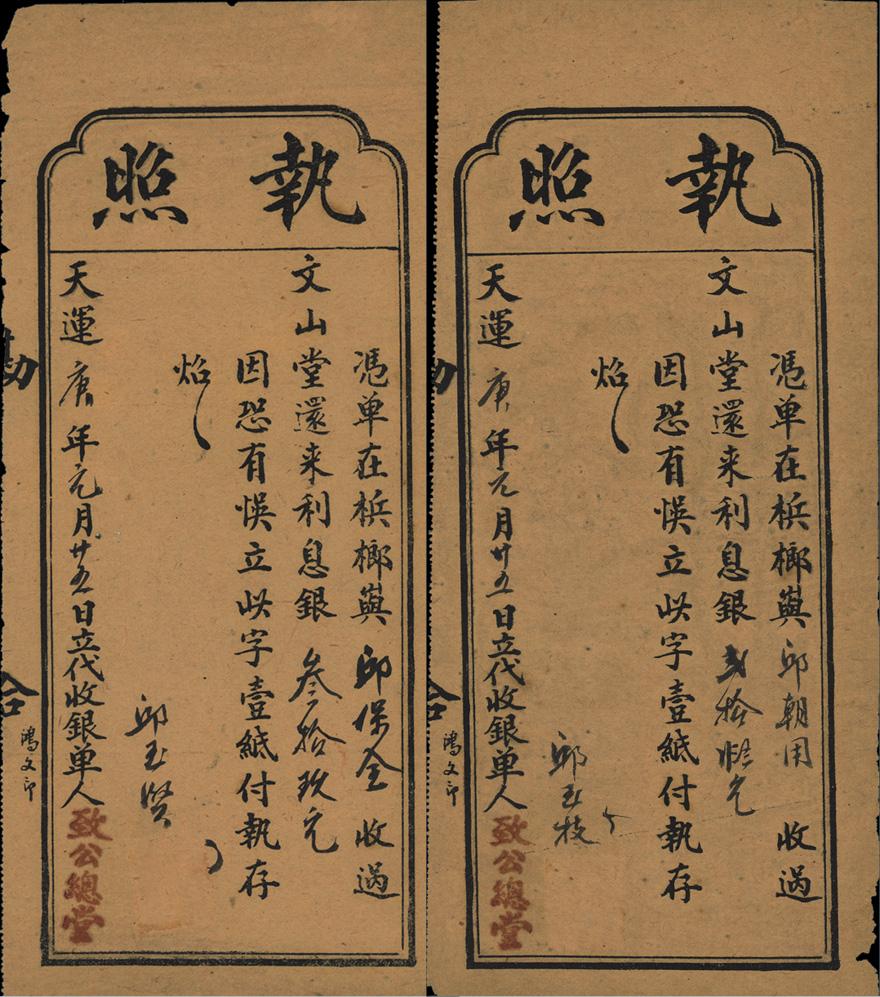 執照
憑单在梹榔與邱保全收過
文山堂還来利息銀叁拾玖元
因恐有悞立此字壹紙付執存
炤
邱玉賢
天運庚年元月廿五日立代收銀单人致公總堂
鴻文印
執照
憑单在梹榔與邱朝用收過
文山堂還来利息銀弍拾元
因恐有悞立此字壹紙付執存
炤
邱玉枝
天運庚年元月廿五日立代收銀单人致公總堂
鴻文印